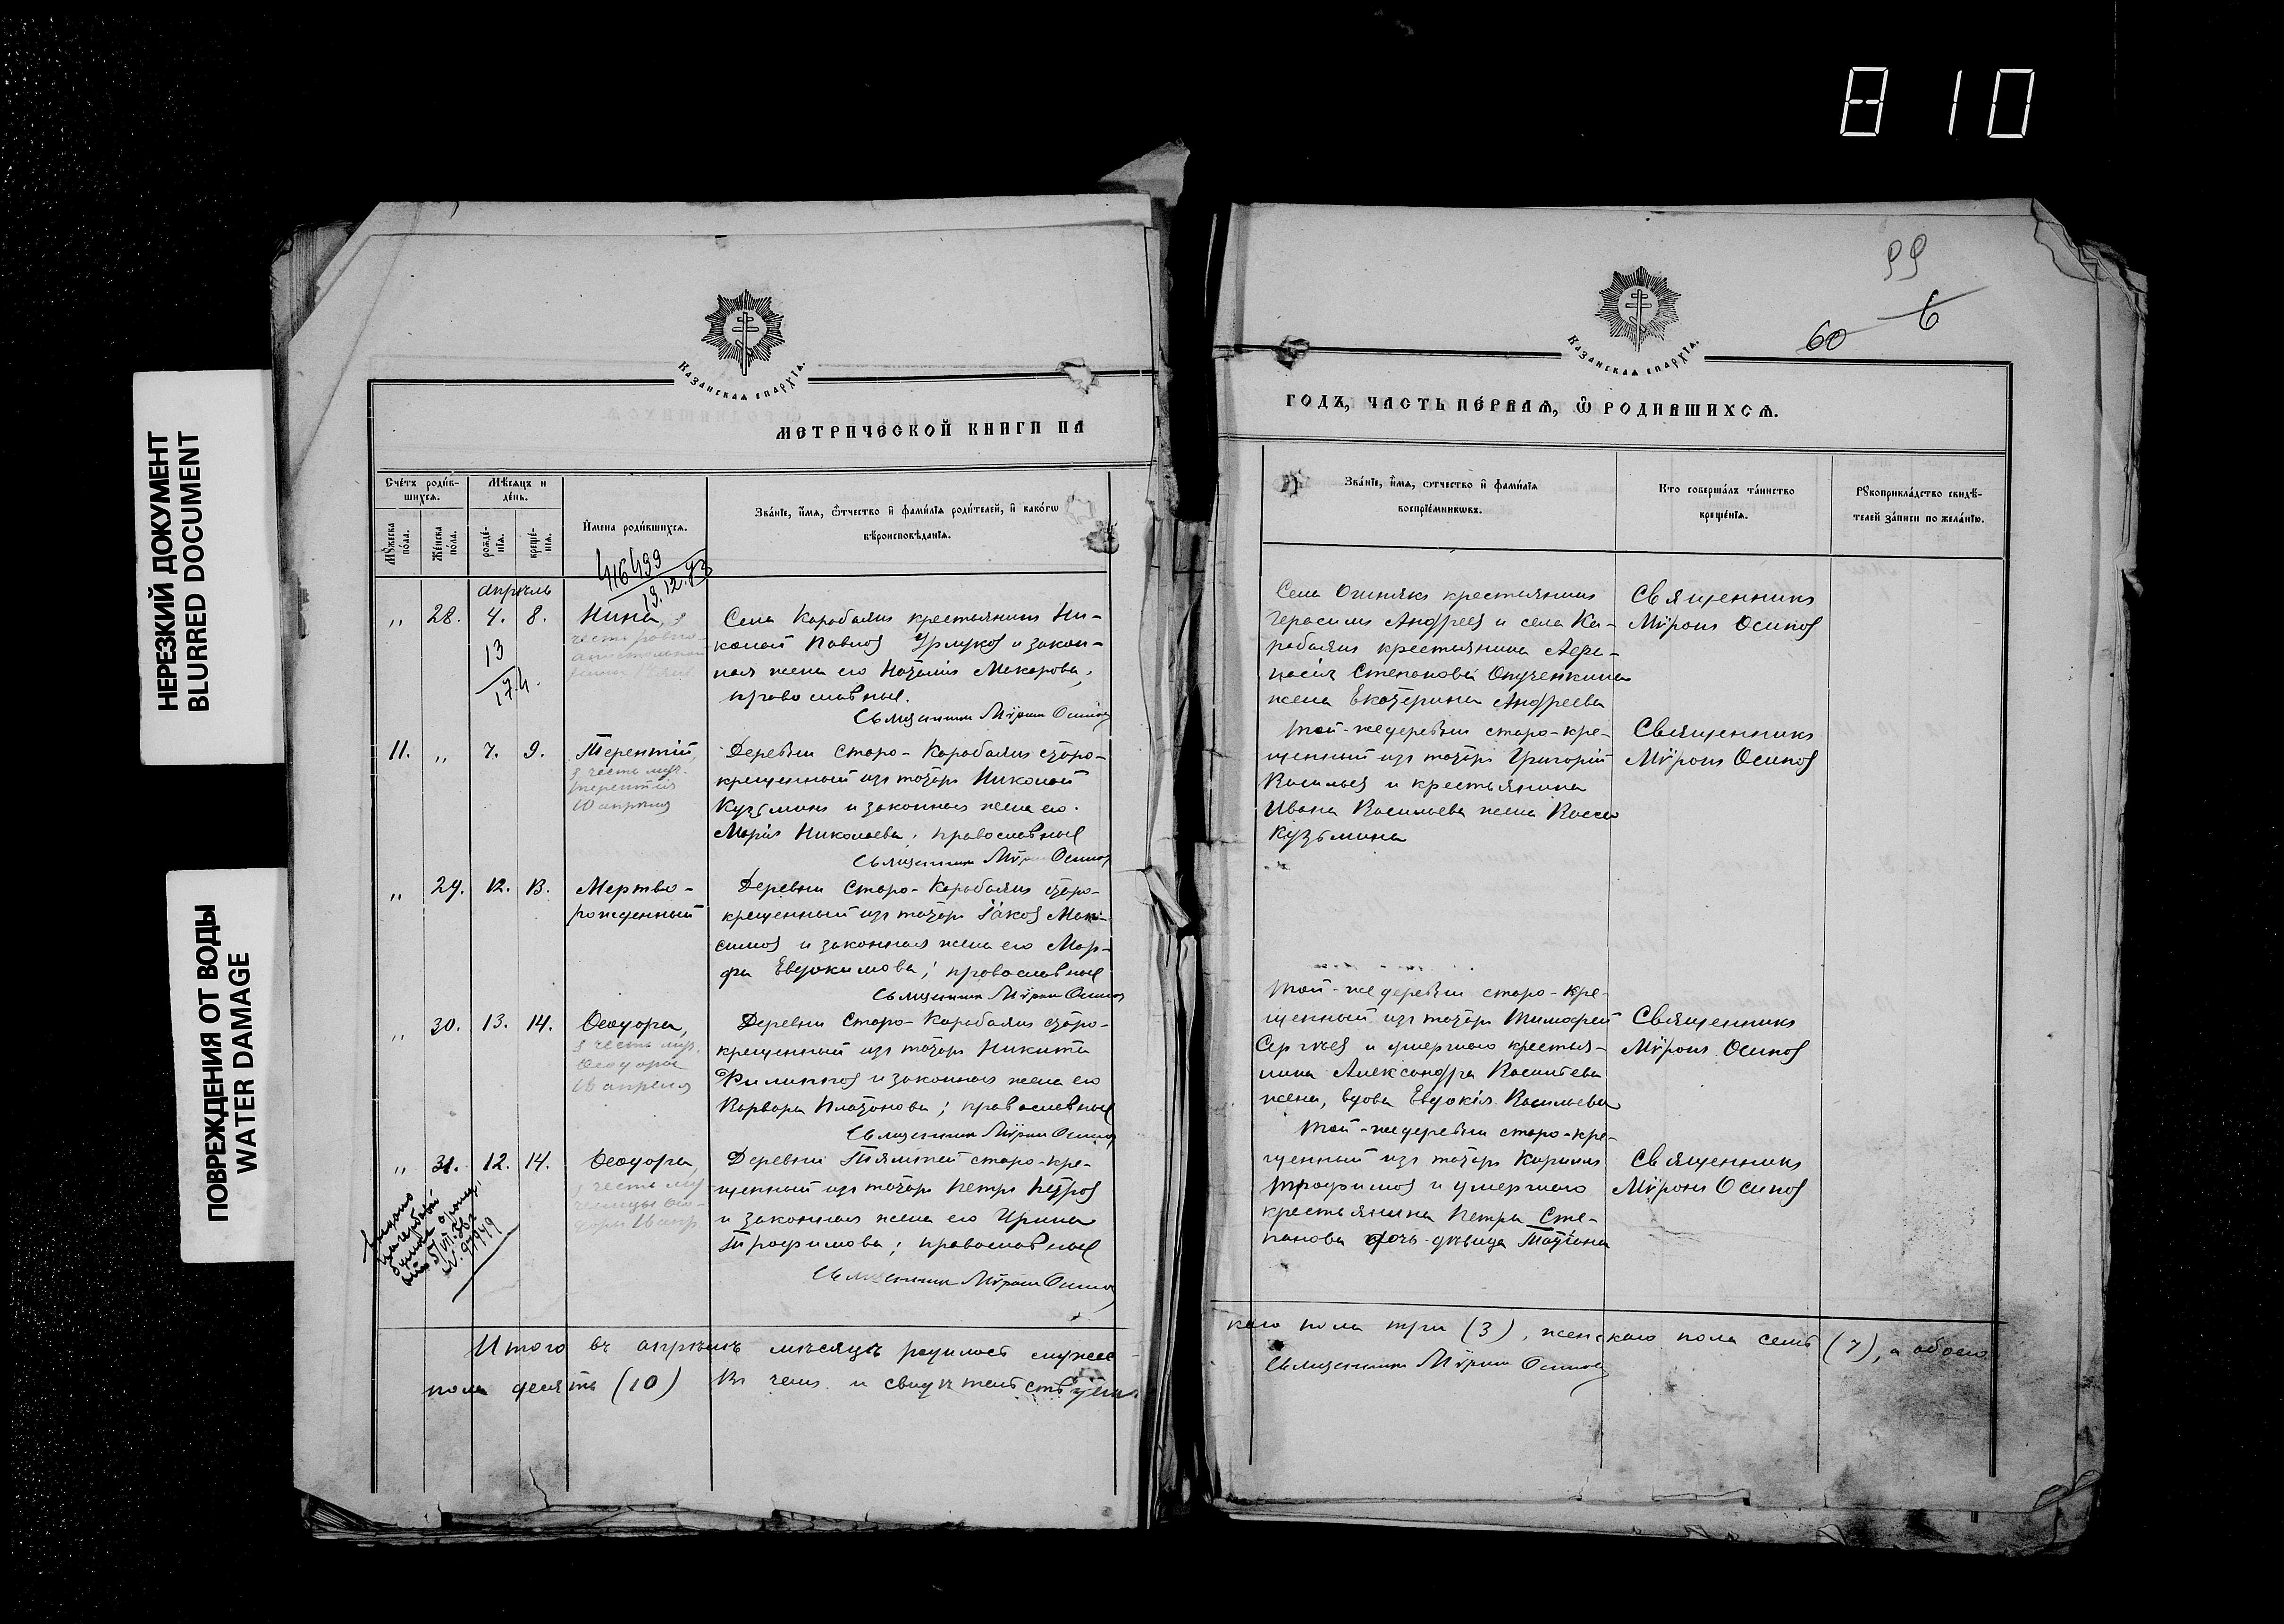 810
НЕРЕЗКИЙ ДОКУМЕНТ
BLURRED DOCUMENT
ПОВРЕЖДЕНИЯ ОТ ВОДЫ
WATER DAMAGE
КАЗАНСКАЯ ЕПАРХІЯ.
МЕТРИЧЕСКОЙ КНИГИ НА
Счетъ родив-
шихся.
Мѣсяцъ и
день.
Мужеска
пола.
Женска
пола.
рожде-
нія.
креще-
нія.
Имена родившихся.
Званіе, имя, отчество и фамилія родителей, и какогѡ
вѣроисповѣданія.
416499
19.12.93
апрѣль
„ 28. 4. 8. Нина, в
честь равно-
апостольной
13
17.4.
Села Карабаянъ крестьянинъ Ни-
колай Павловъ Урмуковъ и закон-
ная жена его Наталія Макарова,
православные.
Священникъ Мѵронъ Осиповъ
11. „ 7. 9. Терентій,
въ честь муч.
Терентія
10 апрѣля
Деревни Старо-Карабаянъ старо-
крещенный изъ татаръ Николай
Кузьминъ и законная жена его
Марія Николаева; православные
Священникъ Мѵронъ Осиповъ
„ 29. 12. 13. Мертво-
рожденный
Деревни Старо-Карабаянъ старо-
крещенный изъ татаръ Іаковъ Мак-
симовъ и законная жена его Мар-
фа Евдокимова; православные
Священникъ Мѵронъ Осиповъ
„ 30. 13. 14. Ѳеодора,
въ честь муч.
Ѳеодоры
апрѣля
Деревни Старо-Карабаянъ старо-
крещенный изъ татаръ Никита
Филипповъ и законная жена его
Варвара Платонова; православные
Священникъ Мѵронъ Осиповъ
„ 31. 12. 14. Ѳеодора,
въ честь му-
ченицы Ѳео-
доры
Деревни Тямтей старо-кре-
щенный изъ татаръ Петръ Петровъ
и законная жена его Ирина
Трофимова; православные
Священникъ Мѵронъ Осиповъ
Итого въ апрѣлѣ мѣсяцѣ родилось мужес-
пола десять (10) Въ чемъ и свидѣтельствуемъ
99
6
60
КАЗАНСКАЯ ЕПАРХІЯ.
ГОДЪ, ЧАСТЬ ПЕРВАЯ, Ѡ РОДИВШИХСЯ.
Званіе, имя, отчество и фамилія
воспріемникѡвъ.
Кто совершалъ таинство
крещенія.
Рукоприкладство свидѣ-
телей записи по желанію.
Села крестьянинъ
Герасимъ Андреевъ и села Ка-
рабаянъ крестьянина
Степанова Опученкина
жена Екатерина Андреева
Священникъ
Мѵронъ Осиповъ
Той-же деревни старо-кре-
щенный изъ татаръ Григорій
Васильевъ и крестьянина
Ивана Васильева жена Васса
Кузьмина
Священникъ
Мѵронъ Осиповъ
Той-же деревни старо-кре-
щенный изъ татаръ Тимофей
Сергѣевъ и умершаго крестья-
нина Александра Васильева
жена, вдова Евдокія Васильева
Священникъ
Мѵронъ Осиповъ
Той-же деревни старо-кре-
щенный изъ татаръ Кириллъ
Трофимовъ и умершаго
крестьянина Петра Сте-
панова дочь-дѣвица Татіана
Священникъ
Мѵронъ Осиповъ
каго пола три (3), женскаго пола семь (7), а обоего
Священникъ Мѵронъ Осиповъ